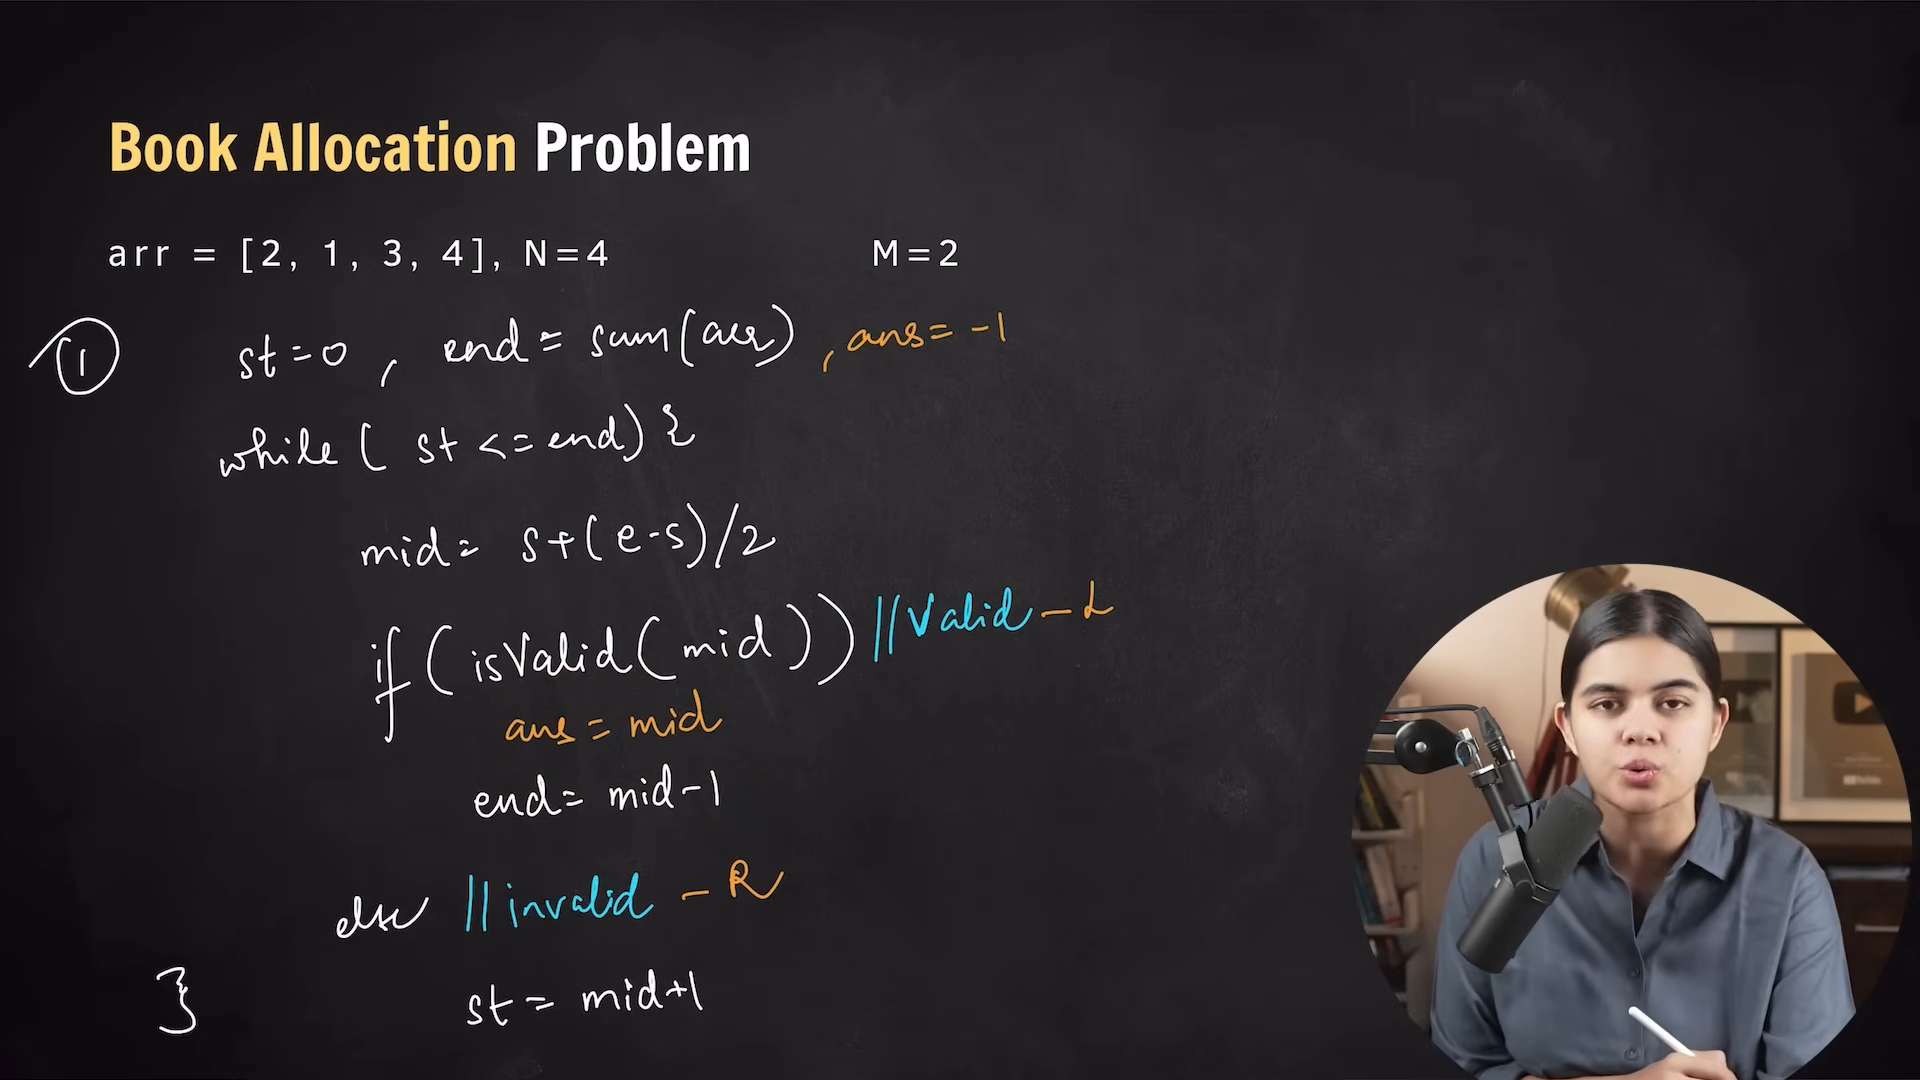 Book Allocation Problem
arr = [2, 1, 3, 4], N=4 M=2
1 st=0 , end = sum(arr) , ans = -1
while ( st <= end) {
mid = s+(e-s)/2
if (isValid(mid)) //Valid - L
ans = mid
end = mid-1
else //invalid - R
} st = mid+1